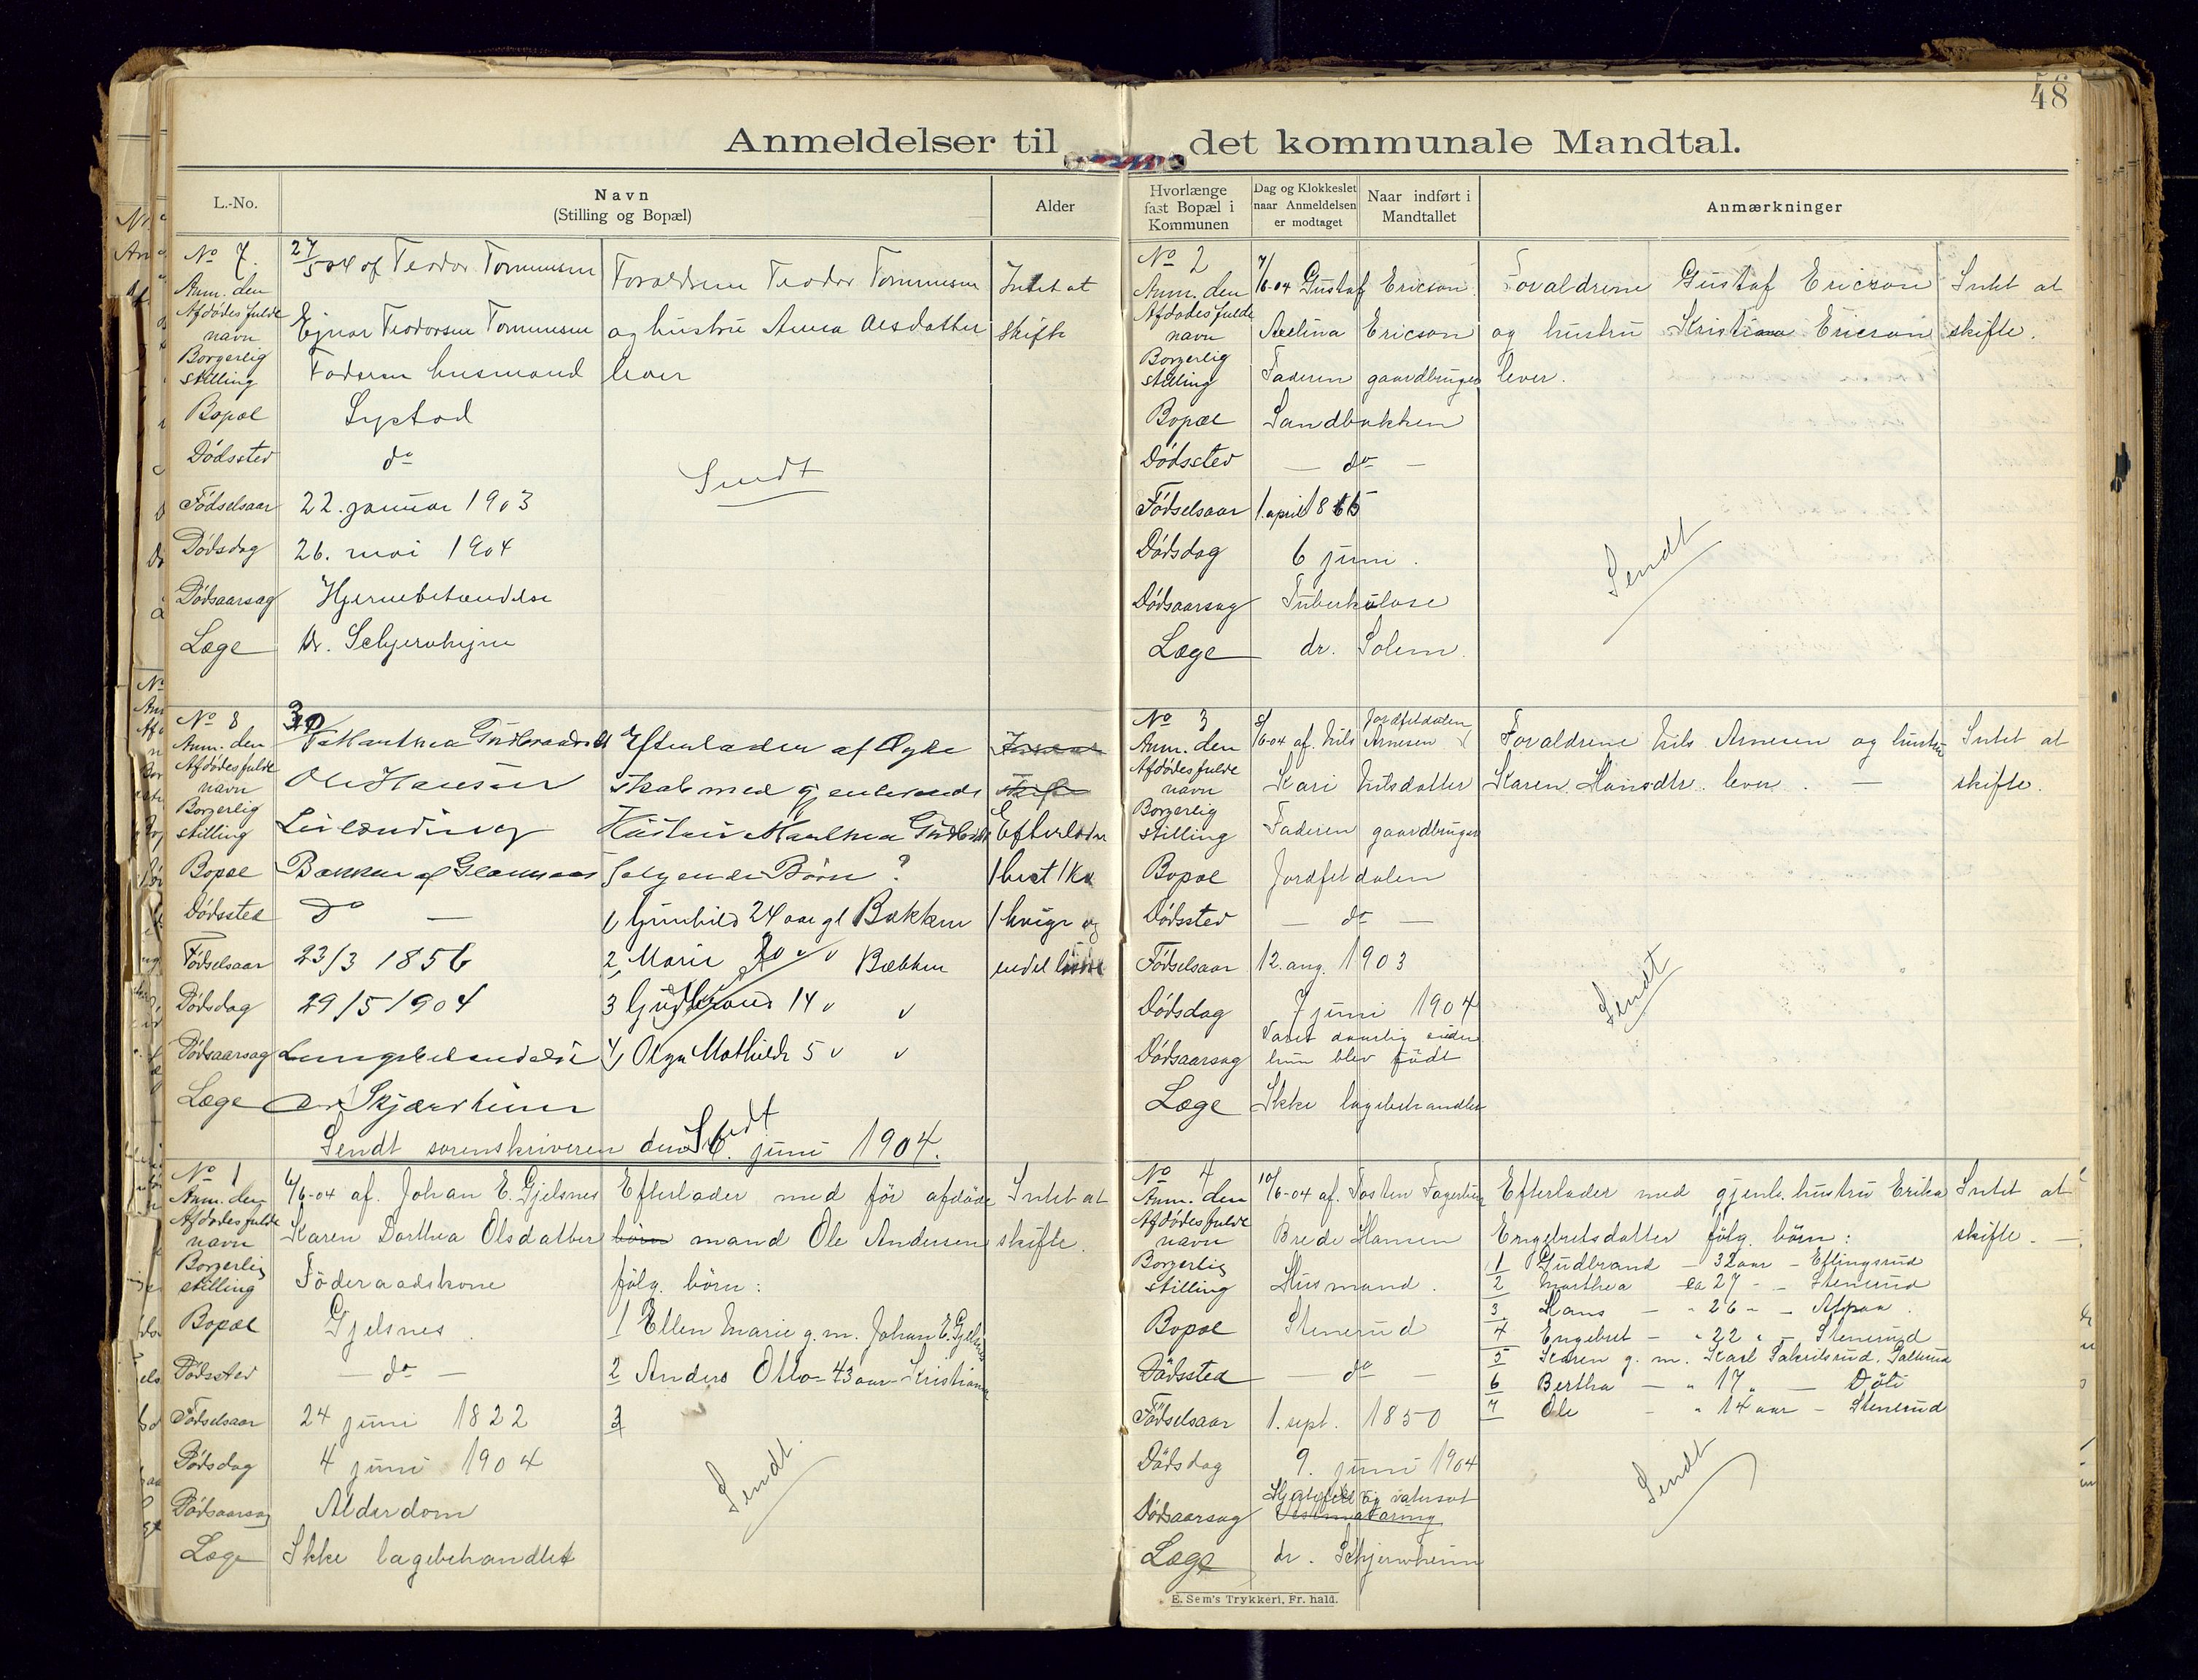 48
Anmeldelser til det kommunale Mandtal.
L.-No.
Navn
(Stilling og Bopæl)
Alder
No 7.
Anm. den 27/5 04 af Teodor Tommesen
Foraldrene Teodor Tommesen
Intet at
Afdødes fulde navn Ejnar Teodorsen Tommesen
og hustru Anna Olsdatter
skifte
Borgerlig stilling Faderen husmand
lever
Bopæl
Dødssted do
Sendt
Fødselsaar 22. januar 1903
Dødsdag 26. mai 1904
Dødsaarsag Hjernebetændelse
Læge Dr.
No 8
Anm. den
Efterlader af Ægte
Afdødes fulde navn Ole Hansen
skab med gjenlevende
Borgerlig stilling
Hustru Marthea
Efterlader
Bopæl Bakken af
følgende Børn ?
1 hest 1 ku
Dødssted Do —
1, Gunhild 24 aar gl Bakken
1 kvige og
Fødselsaar 23/3 1856
2, Marie 20 " " Bakken
endel
Dødsdag 29/5 1904
3 Gudbrand 14 " "
Dødsaarsag Lungebetendelse
4, Olga Mathilde 5 " "
Læge Dr Skjærheim
Sendt
Sendt sorenskriveren den 6. juni 1904.
No 1
Anm. den 6/6-04 af. Johan E. Gjelsnes
Efterlader med før afdøde
Intet at
Afdødes fulde navn Karen Dorthea Olsdatter
børn mand Ole Andersen
skifte.
Borgerlig stilling Föderaadskone
følg. børn:
Bopæl Gjelsnes.
1 Ellen Marie g. m. Johan E. Gjelsnes
Dødssted — do —
2 Anders Otto - 43 aar - Kristiania
Fødselsaar 24 juni 1822
3
Dødsdag 4 juni 1904
Sendt.
Dødsaarsag Alderdom
Læge Ikke lægebehandlet
Hvorlænge fast Bopæl i Kommunen
Dag og Klokkeslet naar Anmeldelsen er modtaget
Naar indført i Mandtallet
Anmærkninger
No 2
Anm. den 7/6-04 Gustaf Ericson.
Forældrene Gustaf Ericson
Intet at
Afdødes fulde navn Axelina Ericson
og hustru Kristiana Ericson
skifte.
Borgerlig stilling Faderen gaardbruger
lever.
Bopæl Sandbakken
Dødssted — do —
Fødselsaar 1. april
Dødsdag 6 juni.
Sendt
Dødsaarsag Tuberkulose
Læge dr. Solem.
No 3
Jordfetdalen
Anm. den 8/6-04 af. Nils Arnesen
Forældrene Nils Arnesen og hustru
Intet at
Afdødes fulde navn Kari Nilsdatter
Karen Hansdtr. lever. —
skifte.
Borgerlig stilling Faderen gaardbruger
Bopæl Jordfetdalen
Dødssted — do —
Fødselsaar 12. aug. 1903
Sendt
Dødsdag 7 juni 1904
Været daarlig siden
Dødsaarsag hun blev födt
Læge Ikke lægebehandlet
No 4
Anm. den 10/6-04 af. Tosten
Efterlader med gjenlv. hustru Erika
Intet at
Afdødes fulde navn Brede Hansen
Engebretsdatter følg. børn:
skifte. —
Borgerlig stilling Husmand.
1 Gudbrand — 32 aar — Eftingsrud
2 Marthea ca 27 - — Stenerud
Bopæl Stenerud
3 Hans — " 26 " —
4 Engebret — " 22 " — Stenerud
Dødssted — do —
5 Karen g. m. Karl
6 Bertha — " 17 " — Döli
Fødselsaar 1. sept. 1850
7 Ole — " 14 aar — Stenerud
Dødsdag 9. juni 1904
Sendt
Hjertefeil og vatersot
Dødsaarsag
Læge dr. Schjerwheim
E. Sem's Trykkeri, Fr. hald.